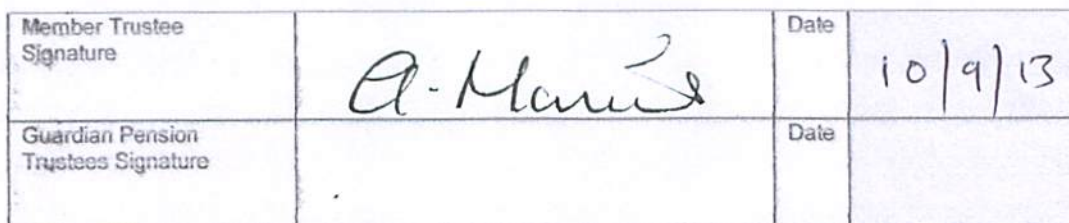 Member Trustee
Signature
Date
10/9/13
Guardian Pension
Trustees Signature
Date